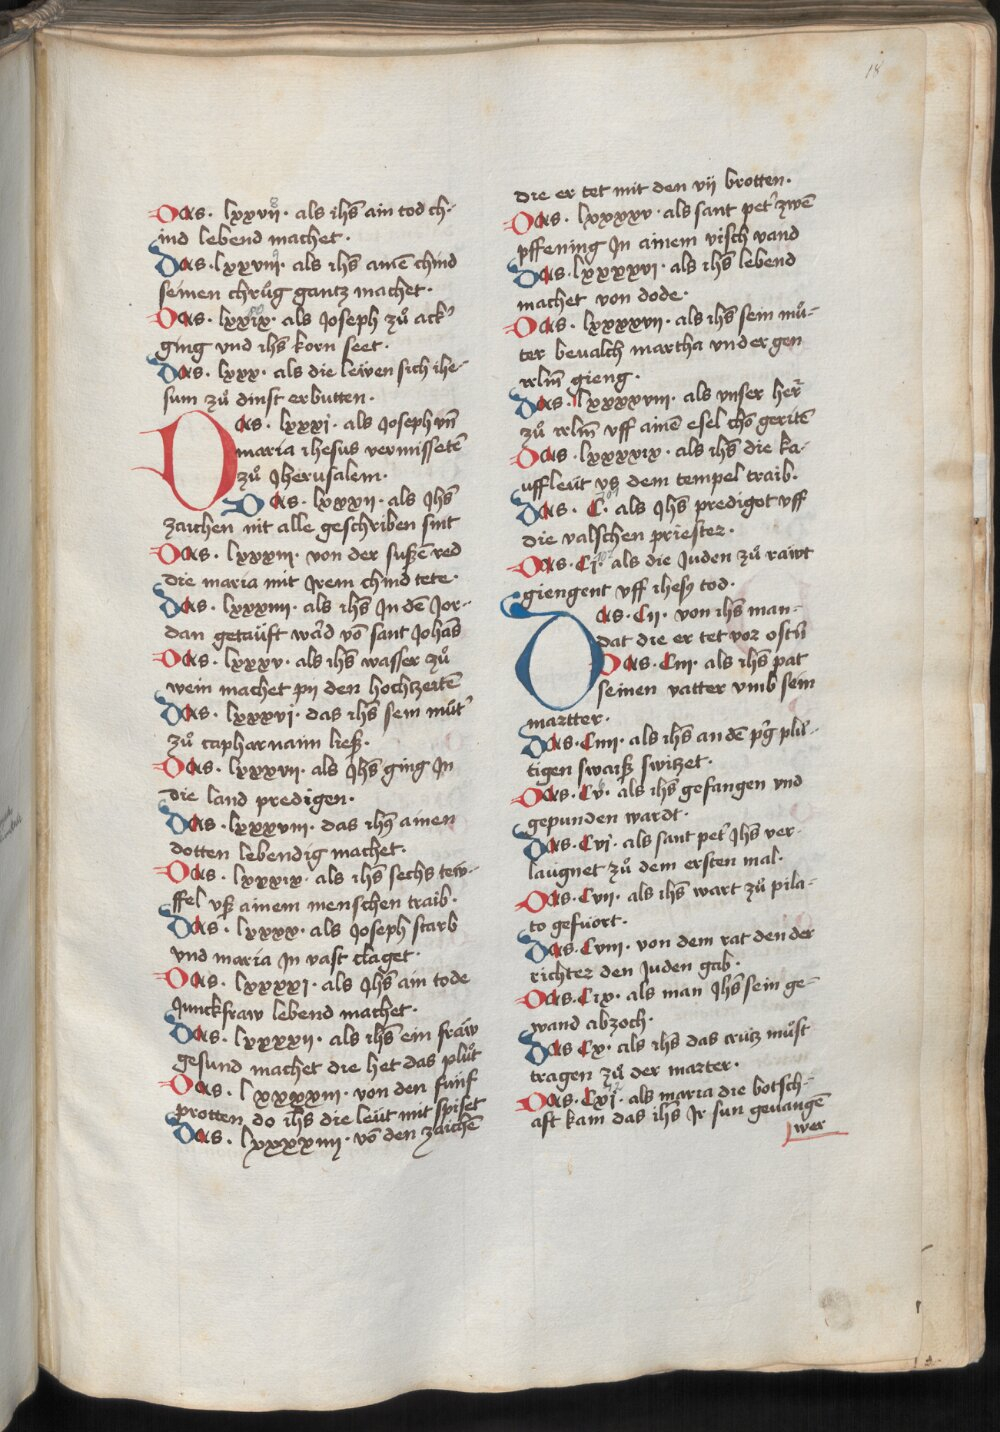 18
Das · lxxvij · als ihs̄ ain tod ch-
ind lebend machet ·
Das · lxxviij · als ihs̄ ainē chind
seinen chrůg gantz machet ·
Das · lxxix · als Joseph zů ack̓
ging vnd ihs̄ korn seet ·
Das · lxxx · als die lewen sich ihe-
sum zů dinst erbutten ·
Das · lxxxi · als Joseph vn̄
maria ihesus vermissetē
zů Jherusalem ·
Das · lxxxij · als Jhs̄
zaichen nit alle geschriben sint
Das · lxxxiij · von der sußē red
die maria mit Jrem chind tete ·
Das · lxxxiiij · als ihs̄ Jn dē Jor-
dan getaüft ward vō sant Johās
Das · lxxxv · als ihs̄ wasser zů
wein machet pij den hochtzeitē
Das · lxxxvi · das ihs̄ sein můt̓
zů capharnaim ließ ·
Das · lxxxvij · als Jhs̄ ging Jn
die land predigen ·
Das · lxxxviij · das ihs̄ ainen
dotten lebendig machet ·
Das · lxxxix · als ihs̄ sechs tew-
ffel vß ainem menschen traib ·
Das · lxxxx · als Joseph starb
vnd maria Jn vast claget ·
Das · lxxxxi · als Jhs̄ ain tode
Junckfraw lebend machet ·
Das · lxxxxij · als ihs̄ ein fraw
gesund machet die het das plůt
Das · lxxxxiij · von den fünf
protten do ihs̄ die leüt mit spiset
Das · lxxxxiiij · vō den zaichē
die er tet mit den vij brotten ·
Das · lxxxxv · als sant pet̓ zwē
pffening Jn ainem visch vand
Das · lxxxxvi · als ihs̄ lebend
machet von dode ·
Das · lxxxxvij · als ihs̄ sein mů-
ter beualch martha vnd er gen
irlm̄ gieng ·
Das · lxxxxviij · als vnser her̄
zů irlm̄ vff ainē esel chō geritē
Das · lxxxxix · als ihs̄ die ka-
uffleüt vß dem tempel traib ·
Das · C · als Jhs̄ predigot vff
die valschen priester ·
Das · Ci · als die Juden zů rawt
giengent vff ihesꝰ tod ·
Das · Cij · von ihs̄ man-
dat die er tet vor ostn̄
Das · Ciij · als ihs̄ pat
seinen vatter vmb sein
martter ·
Das · Ciiij · als ihs̄ an dē p̓g plů-
tigen swaiß switzet ·
Das · Cv · als ihs̄ gefangen vnd
gepunden wardt ·
Das · Cvi · als sant pet̓ Jhs̄ ver-
laugnet zů dem ersten mal ·
Das · Cvij · als ihs̄ wart zů pila-
to gefuort ·
Das · Cviij · von dem rat den der
richter den Juden gab ·
Das · Cix · als man Jhs̄ sein ge-
wand abzoch ·
Das Cx · als ihs̄ das crütz můst
tragen zů der marter ·
Das · Cxi · als maria die botsch-
aft kam das ihs̄ Jr sun geuangē
wer